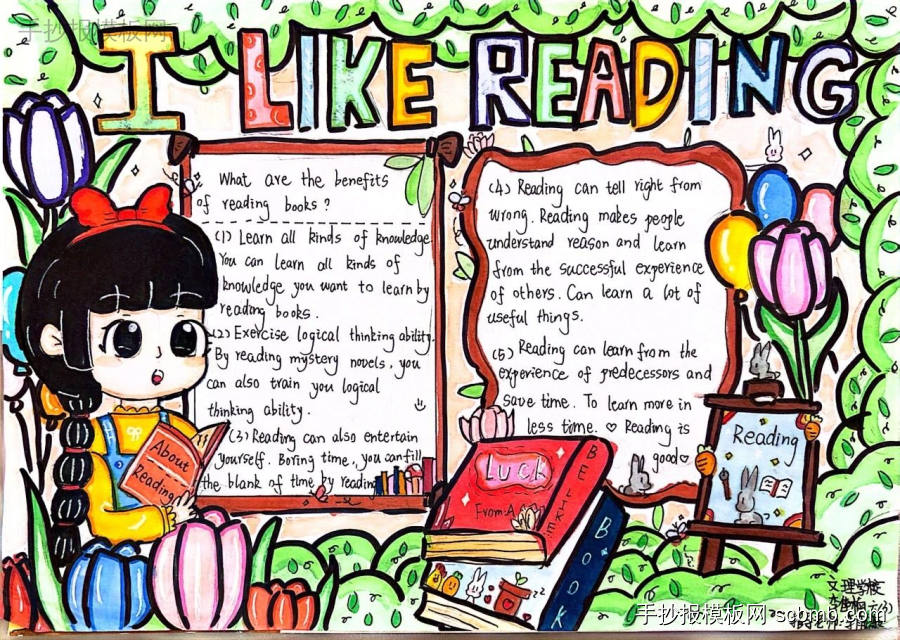 手抄报模板网
I LIKE READING
What are the benefits
of reading books?
(1) Learn all kinds of knowledge
You can learn all kinds of
knowledge you want to learn by
reading books.
(2) Exercise logical thinking ability.
By reading mystery novels, you
can also train you logical
thinking ability.
(3) Reading can also entertain
yourself. Boring time, you can fill
the blank of time by reading
(4) Reading can tell right from
wrong. Reading makes people
understand reason and learn
from the successful experience
of others. Can learn a lot of
useful things.
(5) Reading can learn from the
experience of predecessors and
save time. To learn more in
less time. ♡ Reading is
good♡
About
Reading
Luck
From:A
BE LIKE
BOOK
Reading
文理学校
手抄报模板网-scbmb.com